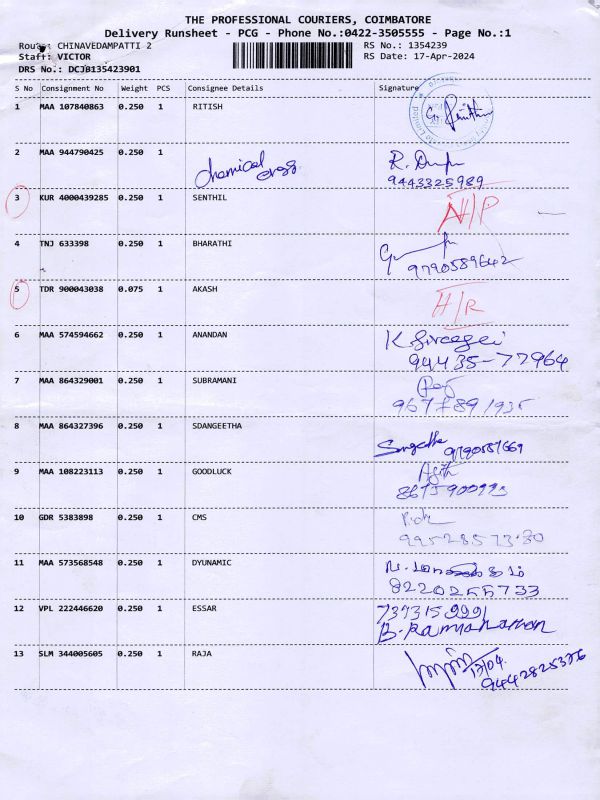 THE PROFESSIONAL COURIERS, COIMBATORE
Delivery Runsheet - PCG - Phone No.:0422-3505555 - Page No.:1
Route: CHINAVEDAMPATTI 2 RS No.: 1354239
Staff: VICTOR RS Date: 17-Apr-2024
DRS No.: DCJB135423901
S No Consignment No Weight PCS Consignee Details Signature
1 MAA 107840863 0.250 1 RITISH
2 MAA 944790425 0.250 1 chemical R.
9443325989
3 KUR 4000439285 0.250 1 SENTHIL
4 TNJ 633398 0.250 1 BHARATHI
9790589642
5 TDR 900043038 0.075 1 AKASH H/R
6 MAA 574594662 0.250 1 ANANDAN K.
94435-77964
7 MAA 864329001 0.250 1 SUBRAMANI
8 MAA 864327396 0.250 1 SDANGEETHA
9 MAA 108223113 0.250 1 GOODLUCK
10 GDR 5383898 0.250 1 CMS
11 MAA 573568548 0.250 1 DYUNAMIC
12 VPL 222446620 0.250 1 ESSAR
13 SLM 344005605 0.250 1 RAJA 17/04.
9442825376